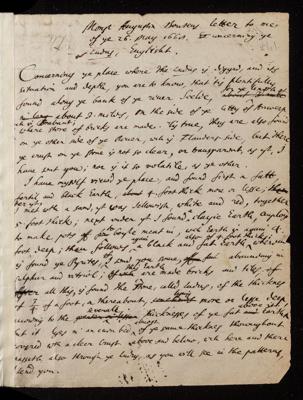 Monsr Augustin Boutens letter to me
of ye 26. May 1668. Concerning ye
Ludus, Englisht.
Concerning ye place where the Ludus is digged, and its
situation and depth, you are to know, that tis plentifully
found along ye bank of ye river Scelde,
about 2. miles, on the side of ye Citty of Antwerp
where store of bricks are made. Tis true, they are also found
on ye other side of ye River, wch is Flanders-side, but there
ye crust on ye stone is not so clear, or transparent, as yt, I
have sent you; nor is it so volatile, as ye other.
I have myself visited ye place, and found first a fatt
fertil and black Earth about 4. foot thick more or less,
I met with a sand, yt was yellowish, white and red, together
5. foot thick; next under yt I found, clayie Earth, employed
to make pots
foot deep; then follows a black and salt Earth, wherein
is found ye Pyrites, and some abounding in
sulphur and vitriol, are made bricks and tiles of
after all this, is found the stone, called Ludus, of the thicknes
of a foot, or thereabout, more or less deep
according to the thicknesses of ye fat and Earth,
but it lyes in an even bed of ye same thicknes throughout
covered wth a clear Crust above and below, wch here and there
passeth also through ye Ludus, as you will see in the patterns,
I send you.